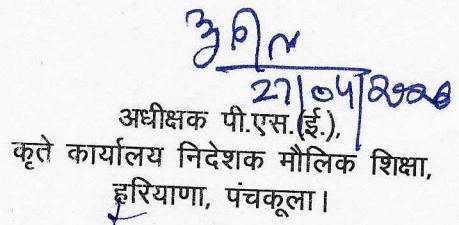 27/04/2026
अधीक्षक पी.एस.(ई.),
कृते कार्यालय निदेशक मौलिक शिक्षा,
हरियाणा, पंचकूला।